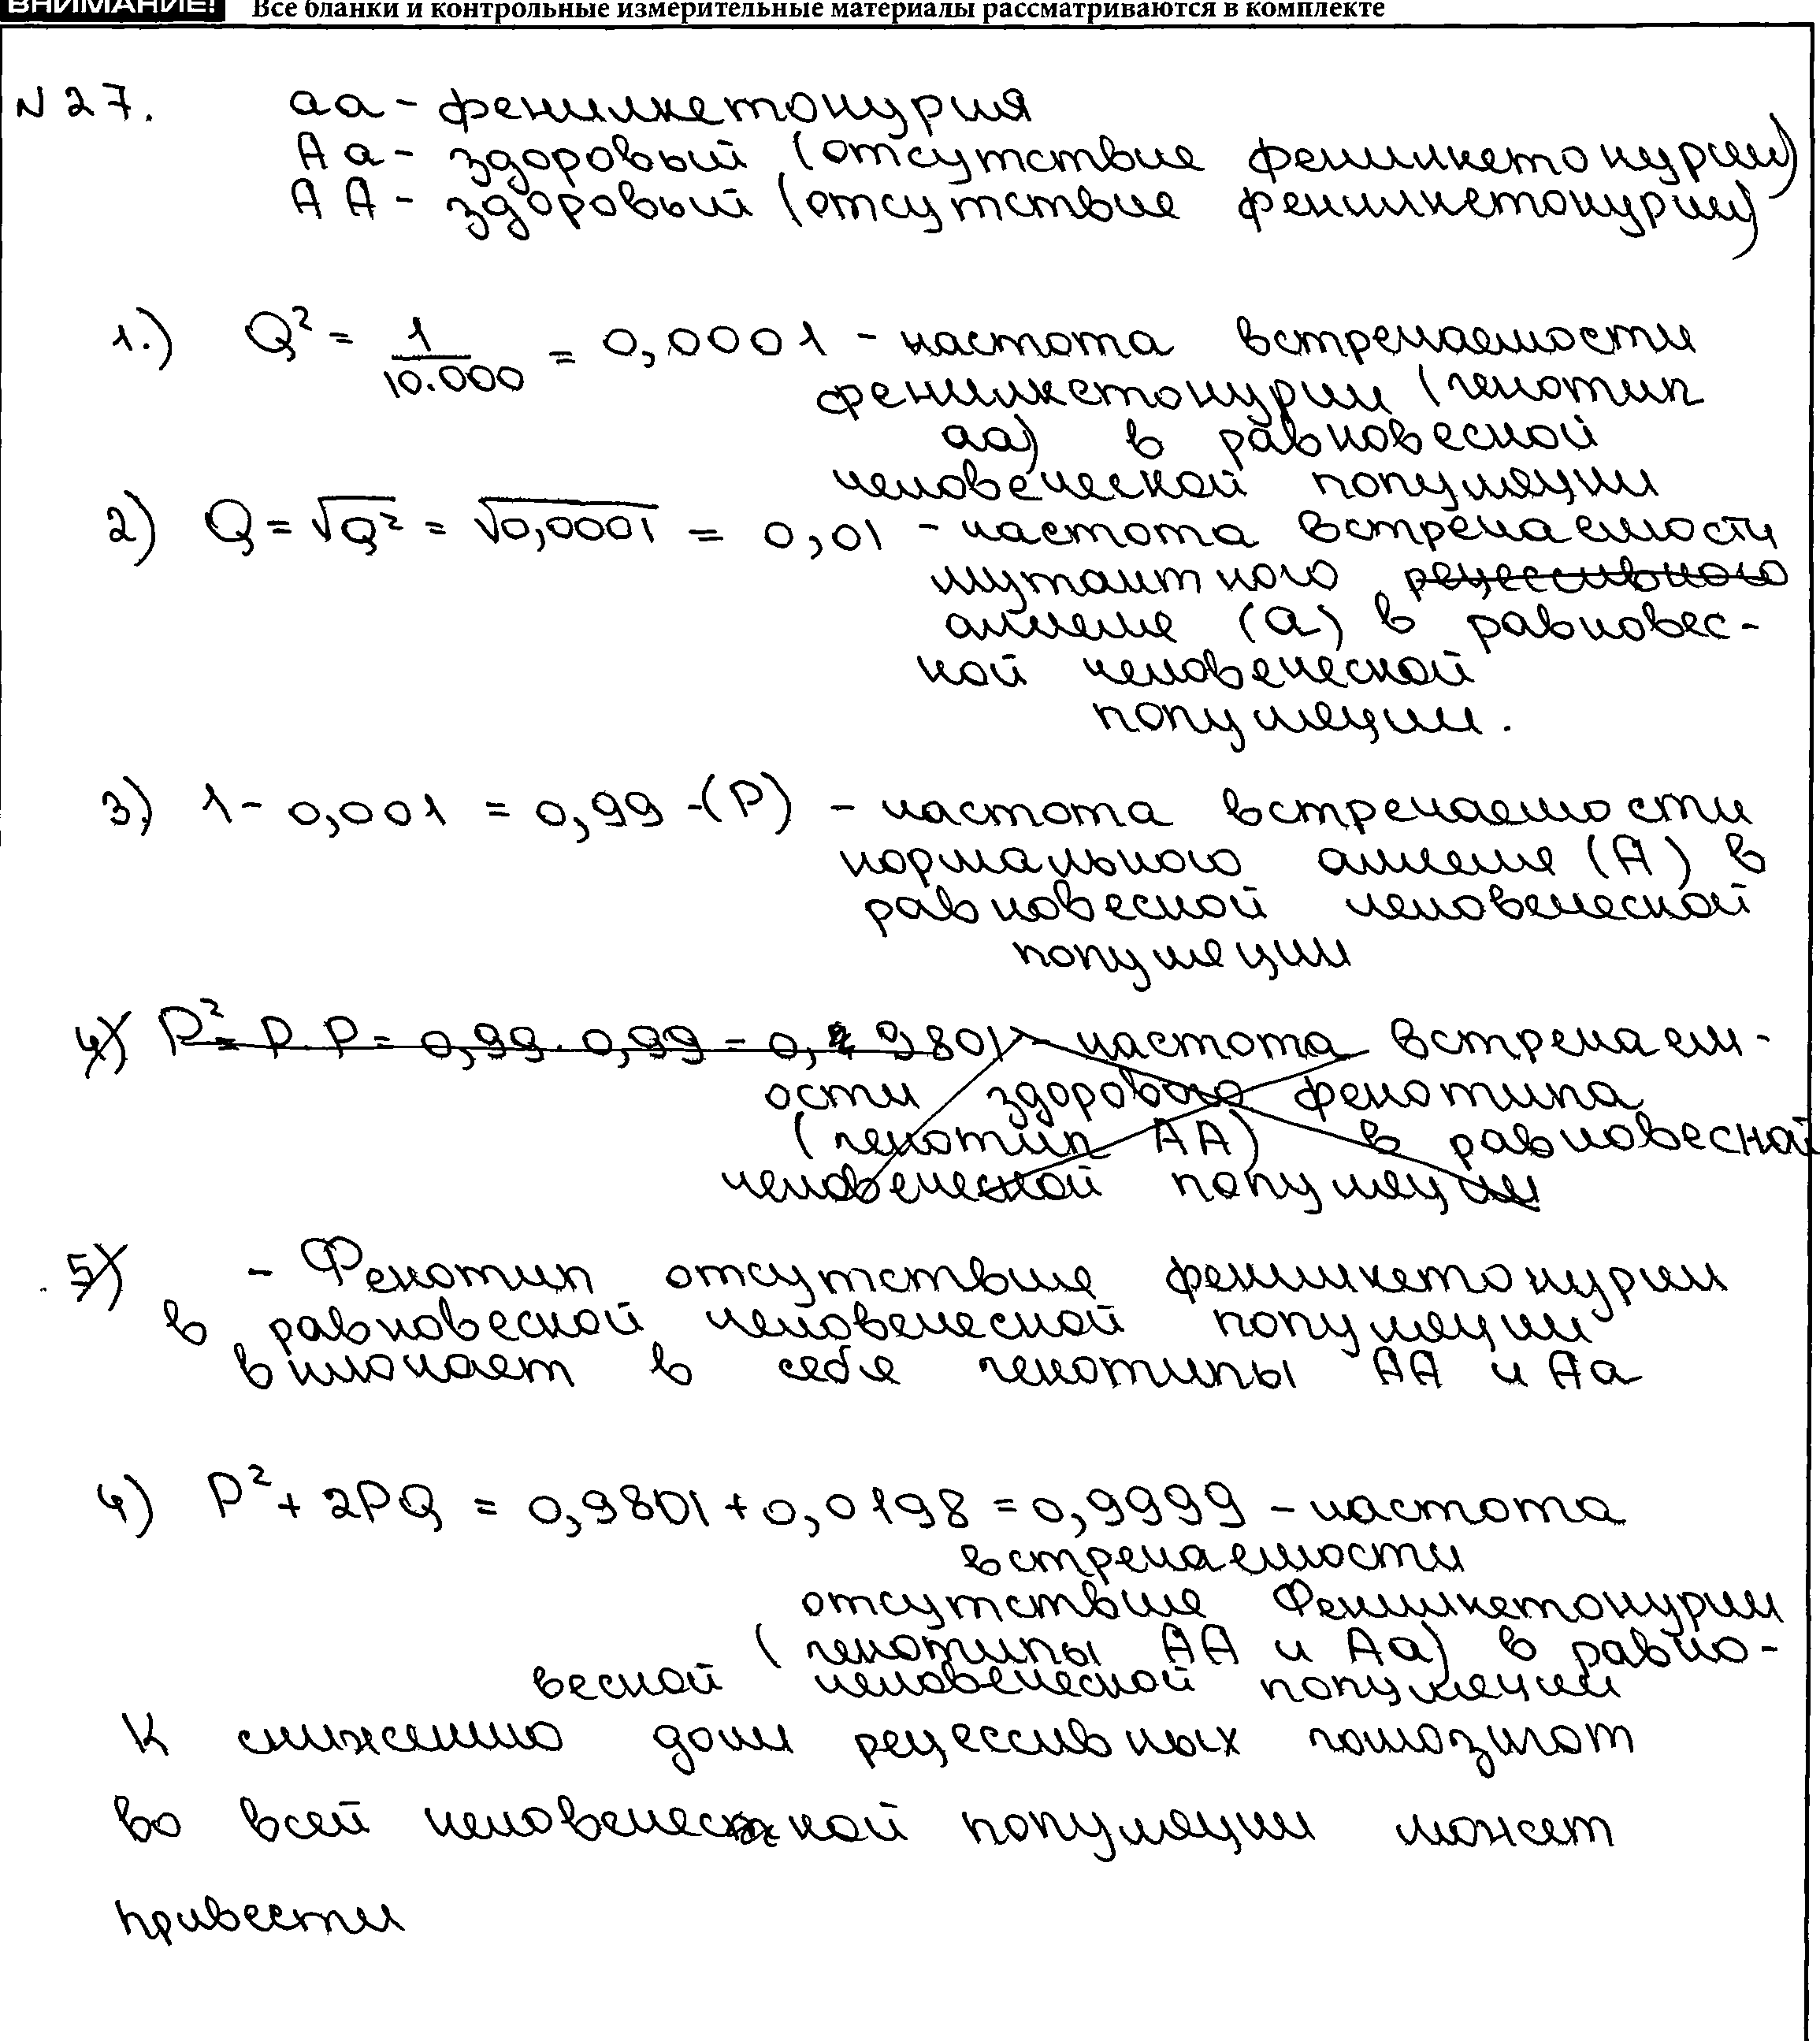 ВНИМАНИЕ! Все бланки и контрольные измерительные материалы рассматриваются в комплекте
N 27. аа - фенилкетонурия
Аа - здоровый (отсутствие фенилкетонурии)
АА - здоровый (отсутствие фенилкетонурии)
1.) Q² = 1/10.000 = 0,0001 - частота встречаемости
фенилкетонурии (генотип
аа) в равновесной
человеческой популяции
2) Q = √Q² = √0,0001 = 0,01 - частота встречаемости
мутантного рецессивного
аллеля (а) в равновес-
ной человеческой
популяции.
3) 1 - 0,001 = 0,99 - (P) - частота встречаемости
нормального аллеля (А) в
равновесной человеческой
популяции
4) P² = P · P = 0,99 · 0,99 = 0,9801 - частота встречаем-
ости здорового фенотипа
(генотип АА) в равновесной
человеческой популяции
5) - Фенотип отсутствие фенилкетонурии
в равновесной человеческой популяции
включает в себя генотипы АА и Аа
4) P² + 2PQ = 0,9801 + 0,0198 = 0,9999 - частота
встречаемости
отсутствие Фенилкетонурии
(генотипы АА и Аа) в равно-
весной человеческой популяции
К снижению доли рецессивных гомозигот
во всей человеческой популяции может
привести